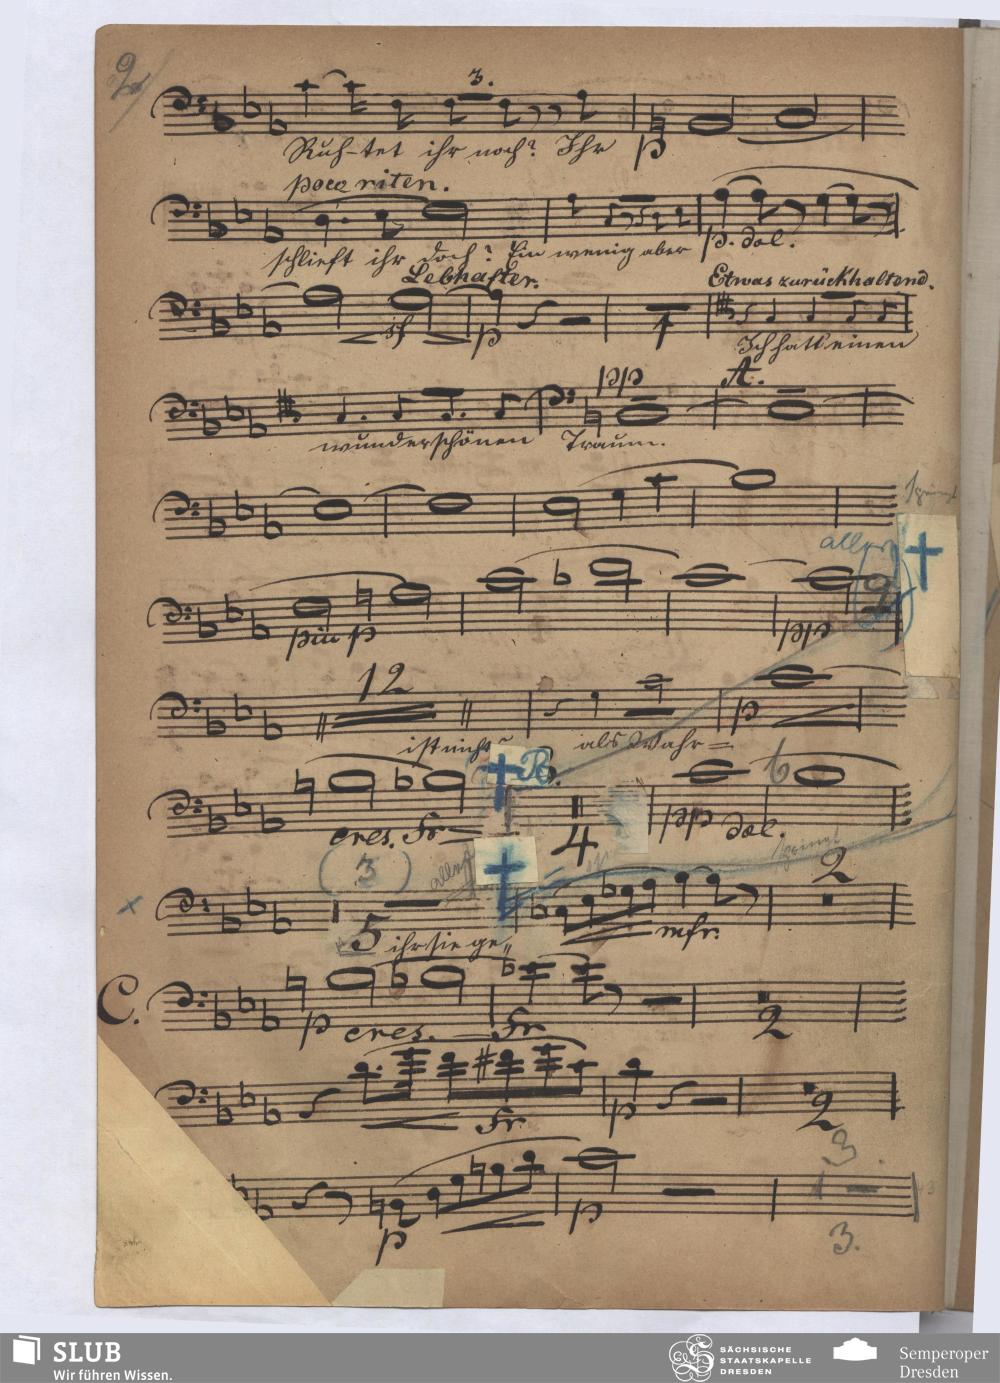 2
3.
Ruh-tet ihr noch? Ihr
p
poco riten.
schlieft ihr doch? Ein wenig aber
p. dol.
Lebhafter.
Etwas zurückhaltend.
sf
p
1
Ich hatt einen
pp
A.
wunderschönen Traum.
springt
alles
2
piu p
pp
12
ist nicht
als Wahr=
p
B.
cres. Fr
4
pp dol.
3
alles
springt
2
5
ihr sie ge
mfr.
C.
p cres. Fr
2
Fr
p
2
3
p
p
3.
SLUB
Wir führen Wissen.
SÄCHSISCHE
STAATSKAPELLE
DRESDEN
Semperoper
Dresden